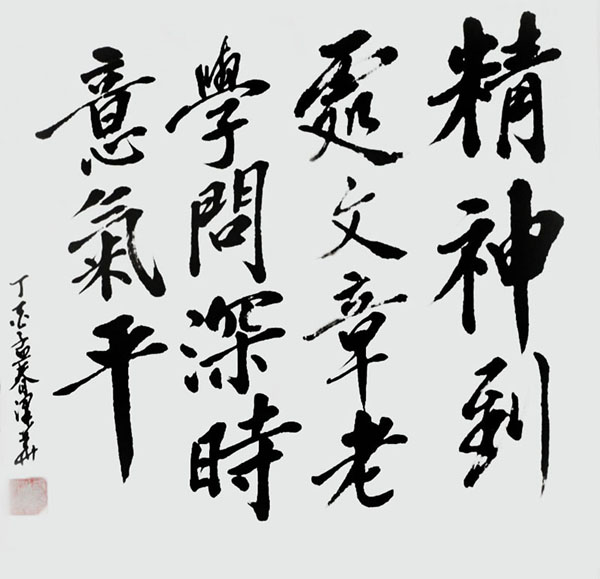 精神到
處文章老
學問深時
意氣平
丁亥孟春